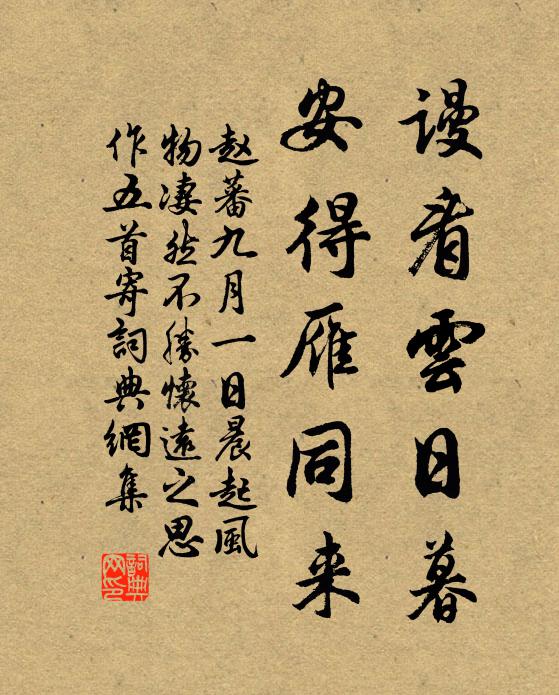 謾看雲日暮
安得雁同来
赵蕃九月一日晨起風
物凄然不勝懷遠之思
作五首寄詞典網集
詞典
网印